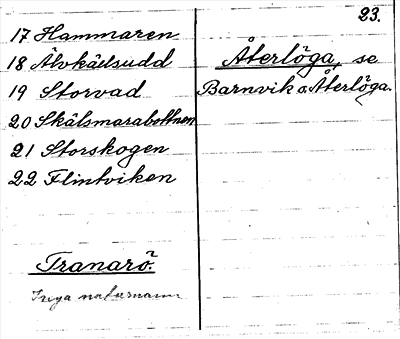 23.
17 Hammaren
18 Älvkåelsudd
19 Storvad
20 Skålsmarabottnen
21 Storskogen
22 Flintviken
Tranarö.
Inga naturnamn
Återlöga, se
Barnvik o Återlöga.